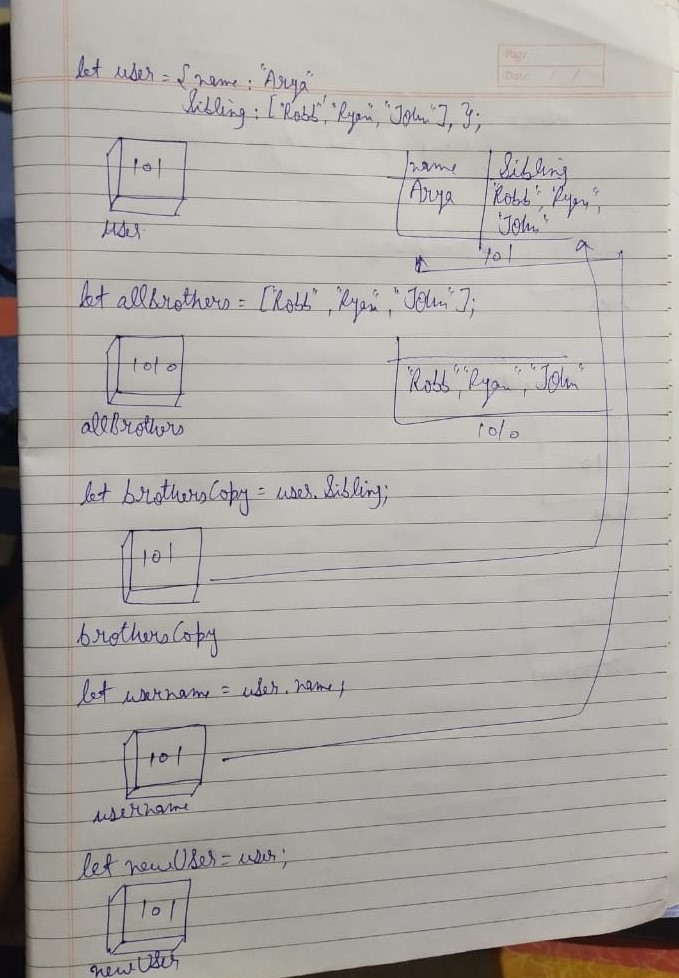 Page
Date / /
let user = { name : "Arya"
Sibling : ["Robb", "Ryan", "John"], };
101
user
name Sibling
Arya "Robb", "Ryan",
"John"
101
let allBrothers = ["Robb", "Ryan", "John"];
1010
allBrothers
"Robb", "Ryan", "John"
1010
let brothersCopy = user.Sibling;
101
brothersCopy
let username = user.name;
101
username
let newUser = user;
101
newUser